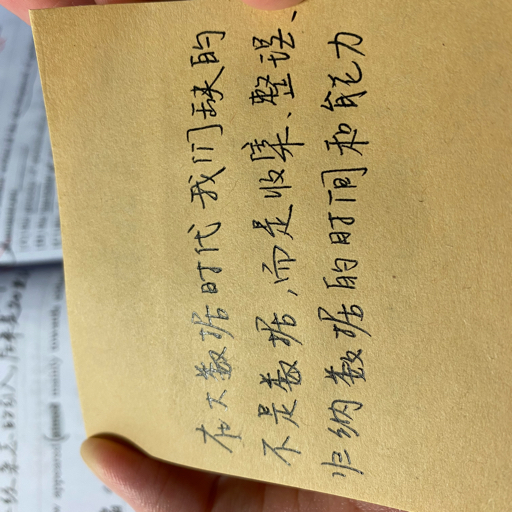 在大数据时代我们缺的
不是数据,而是收集、整理、
归纳数据的时间和能力